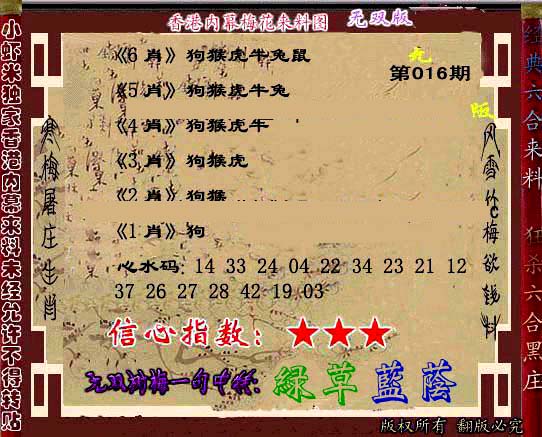 香港内幕梅花来料图 无双版
第016期
《6 肖》狗猴虎牛兔鼠
《5 肖》狗猴虎牛兔
《4 肖》狗猴虎牛
《3 肖》狗猴虎
《2 肖》狗猴
《1 肖》狗
心水码: 14 33 24 04 22 34 23 21 12
37 26 27 28 42 19 03
信心指数: ★★★
无双浏梅一句中特: 緑草 藍蔭
版权所有 翻版必究
小虾米独家香港内幕来料未经允许不得转贴
寒梅屠庄生肖
经典六合来料
狂杀六合黑庄